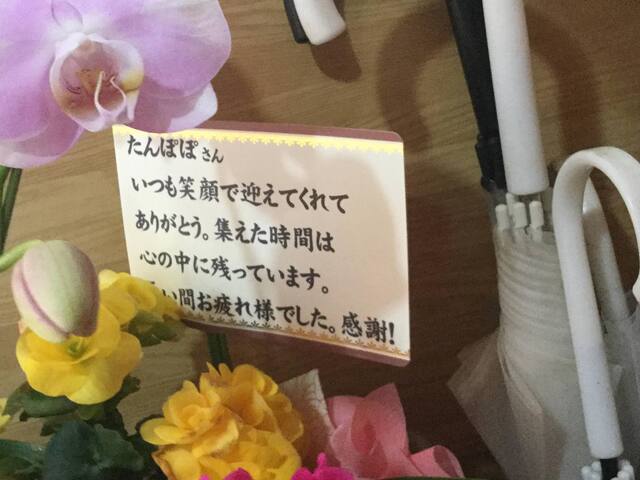 たんぽぽさん
いつも笑顔で迎えてくれて
ありがとう。集えた時間は
心の中に残っています。
い間お疲れ様でした。感謝!